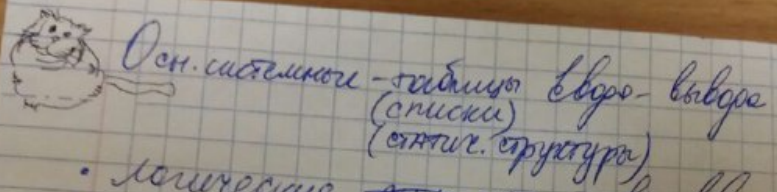 Осн. системные - таблицы ввода-вывода
(списки)
(статич. структуры)
• логические